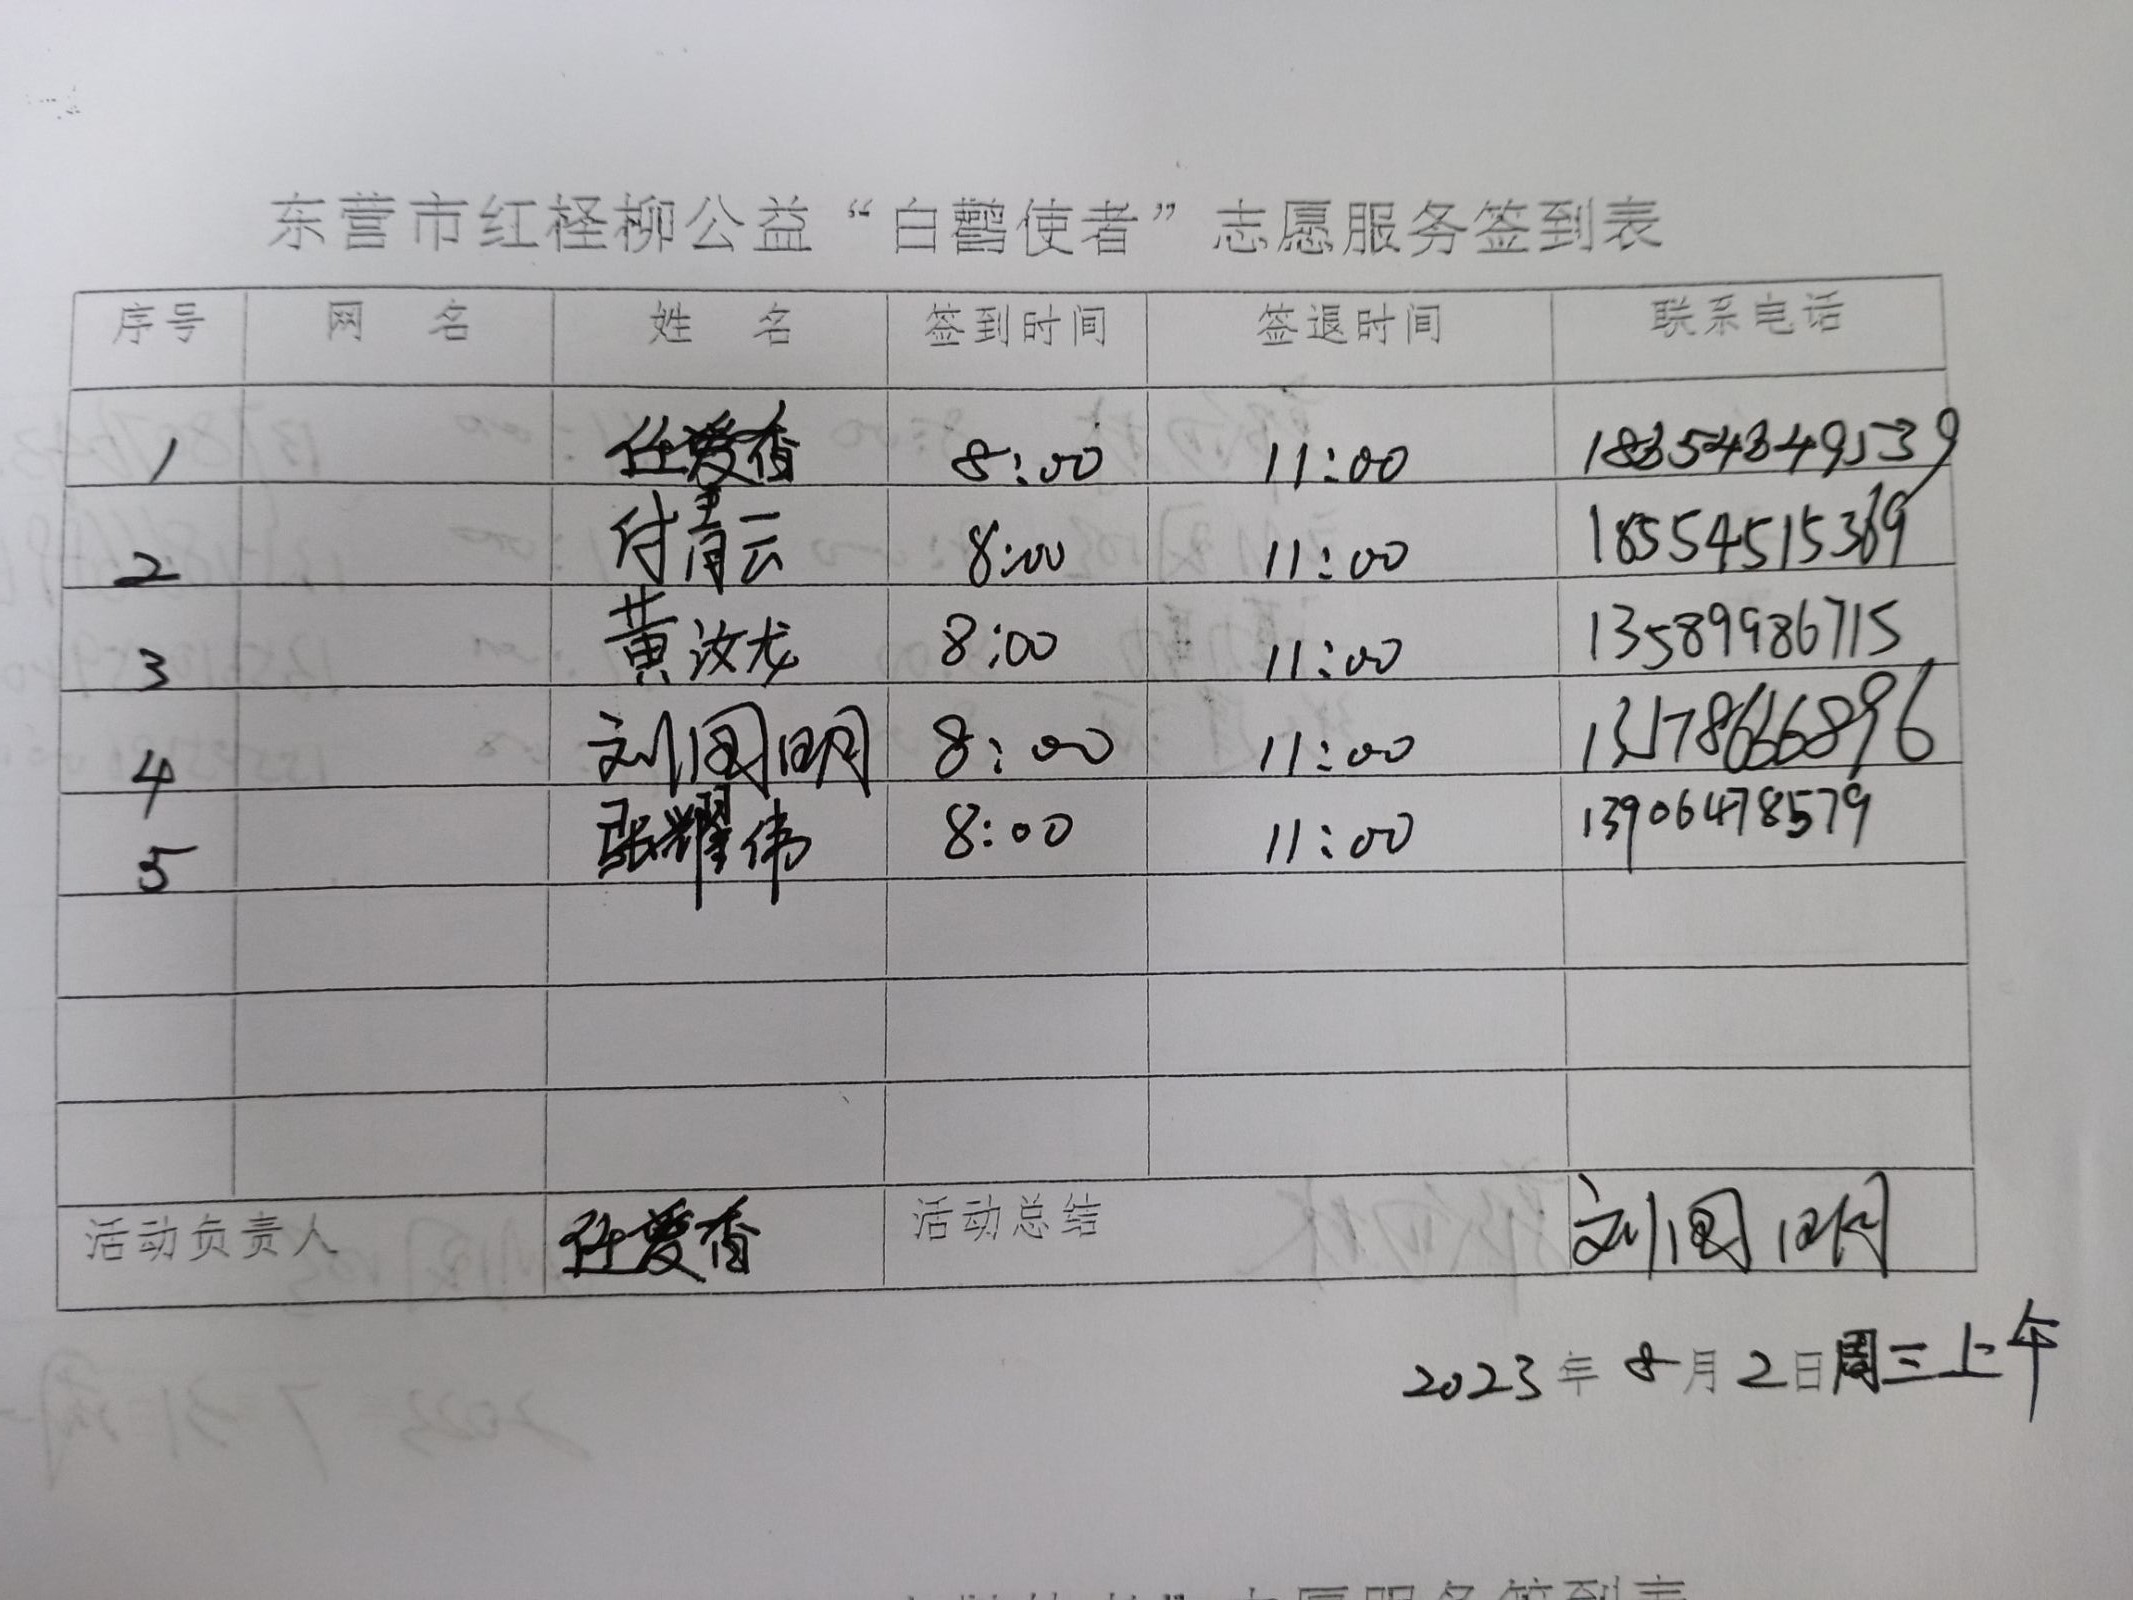 东营市红柽柳公益“白鹳使者”志愿服务签到表
序号 网 名 姓 名 签到时间 签退时间 联系电话
1 任爱香 8:00 11:00 18354349539
2 付青云 8:00 11:00 18554515369
3 黄汝龙 8:00 11:00 13589986715
4 刘国明 8:00 11:00
5 张耀伟 8:00 11:00 13906478579
活动负责人 任爱香 活动总结 刘国明
2023年8月2日周三上午
志愿服务签到表